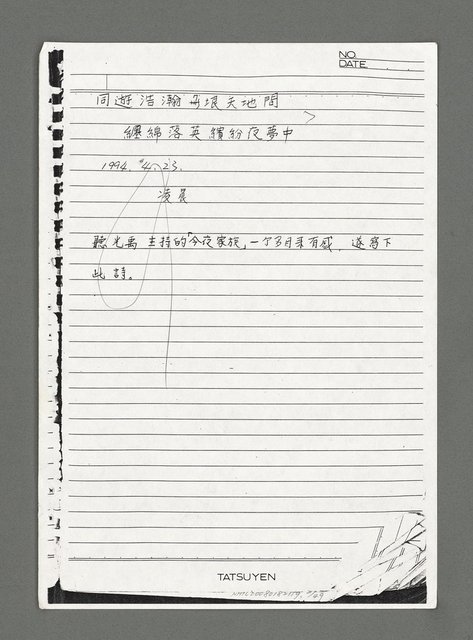 NO.
DATE
同遊浩瀚無垠天地間
纏綿落英繽紛夜夢中
1994. 4. 23.
凌晨
聽光禹主持的「今夜家族」一个多月來有感, 遂寫下
此詩。
TATSUYEN